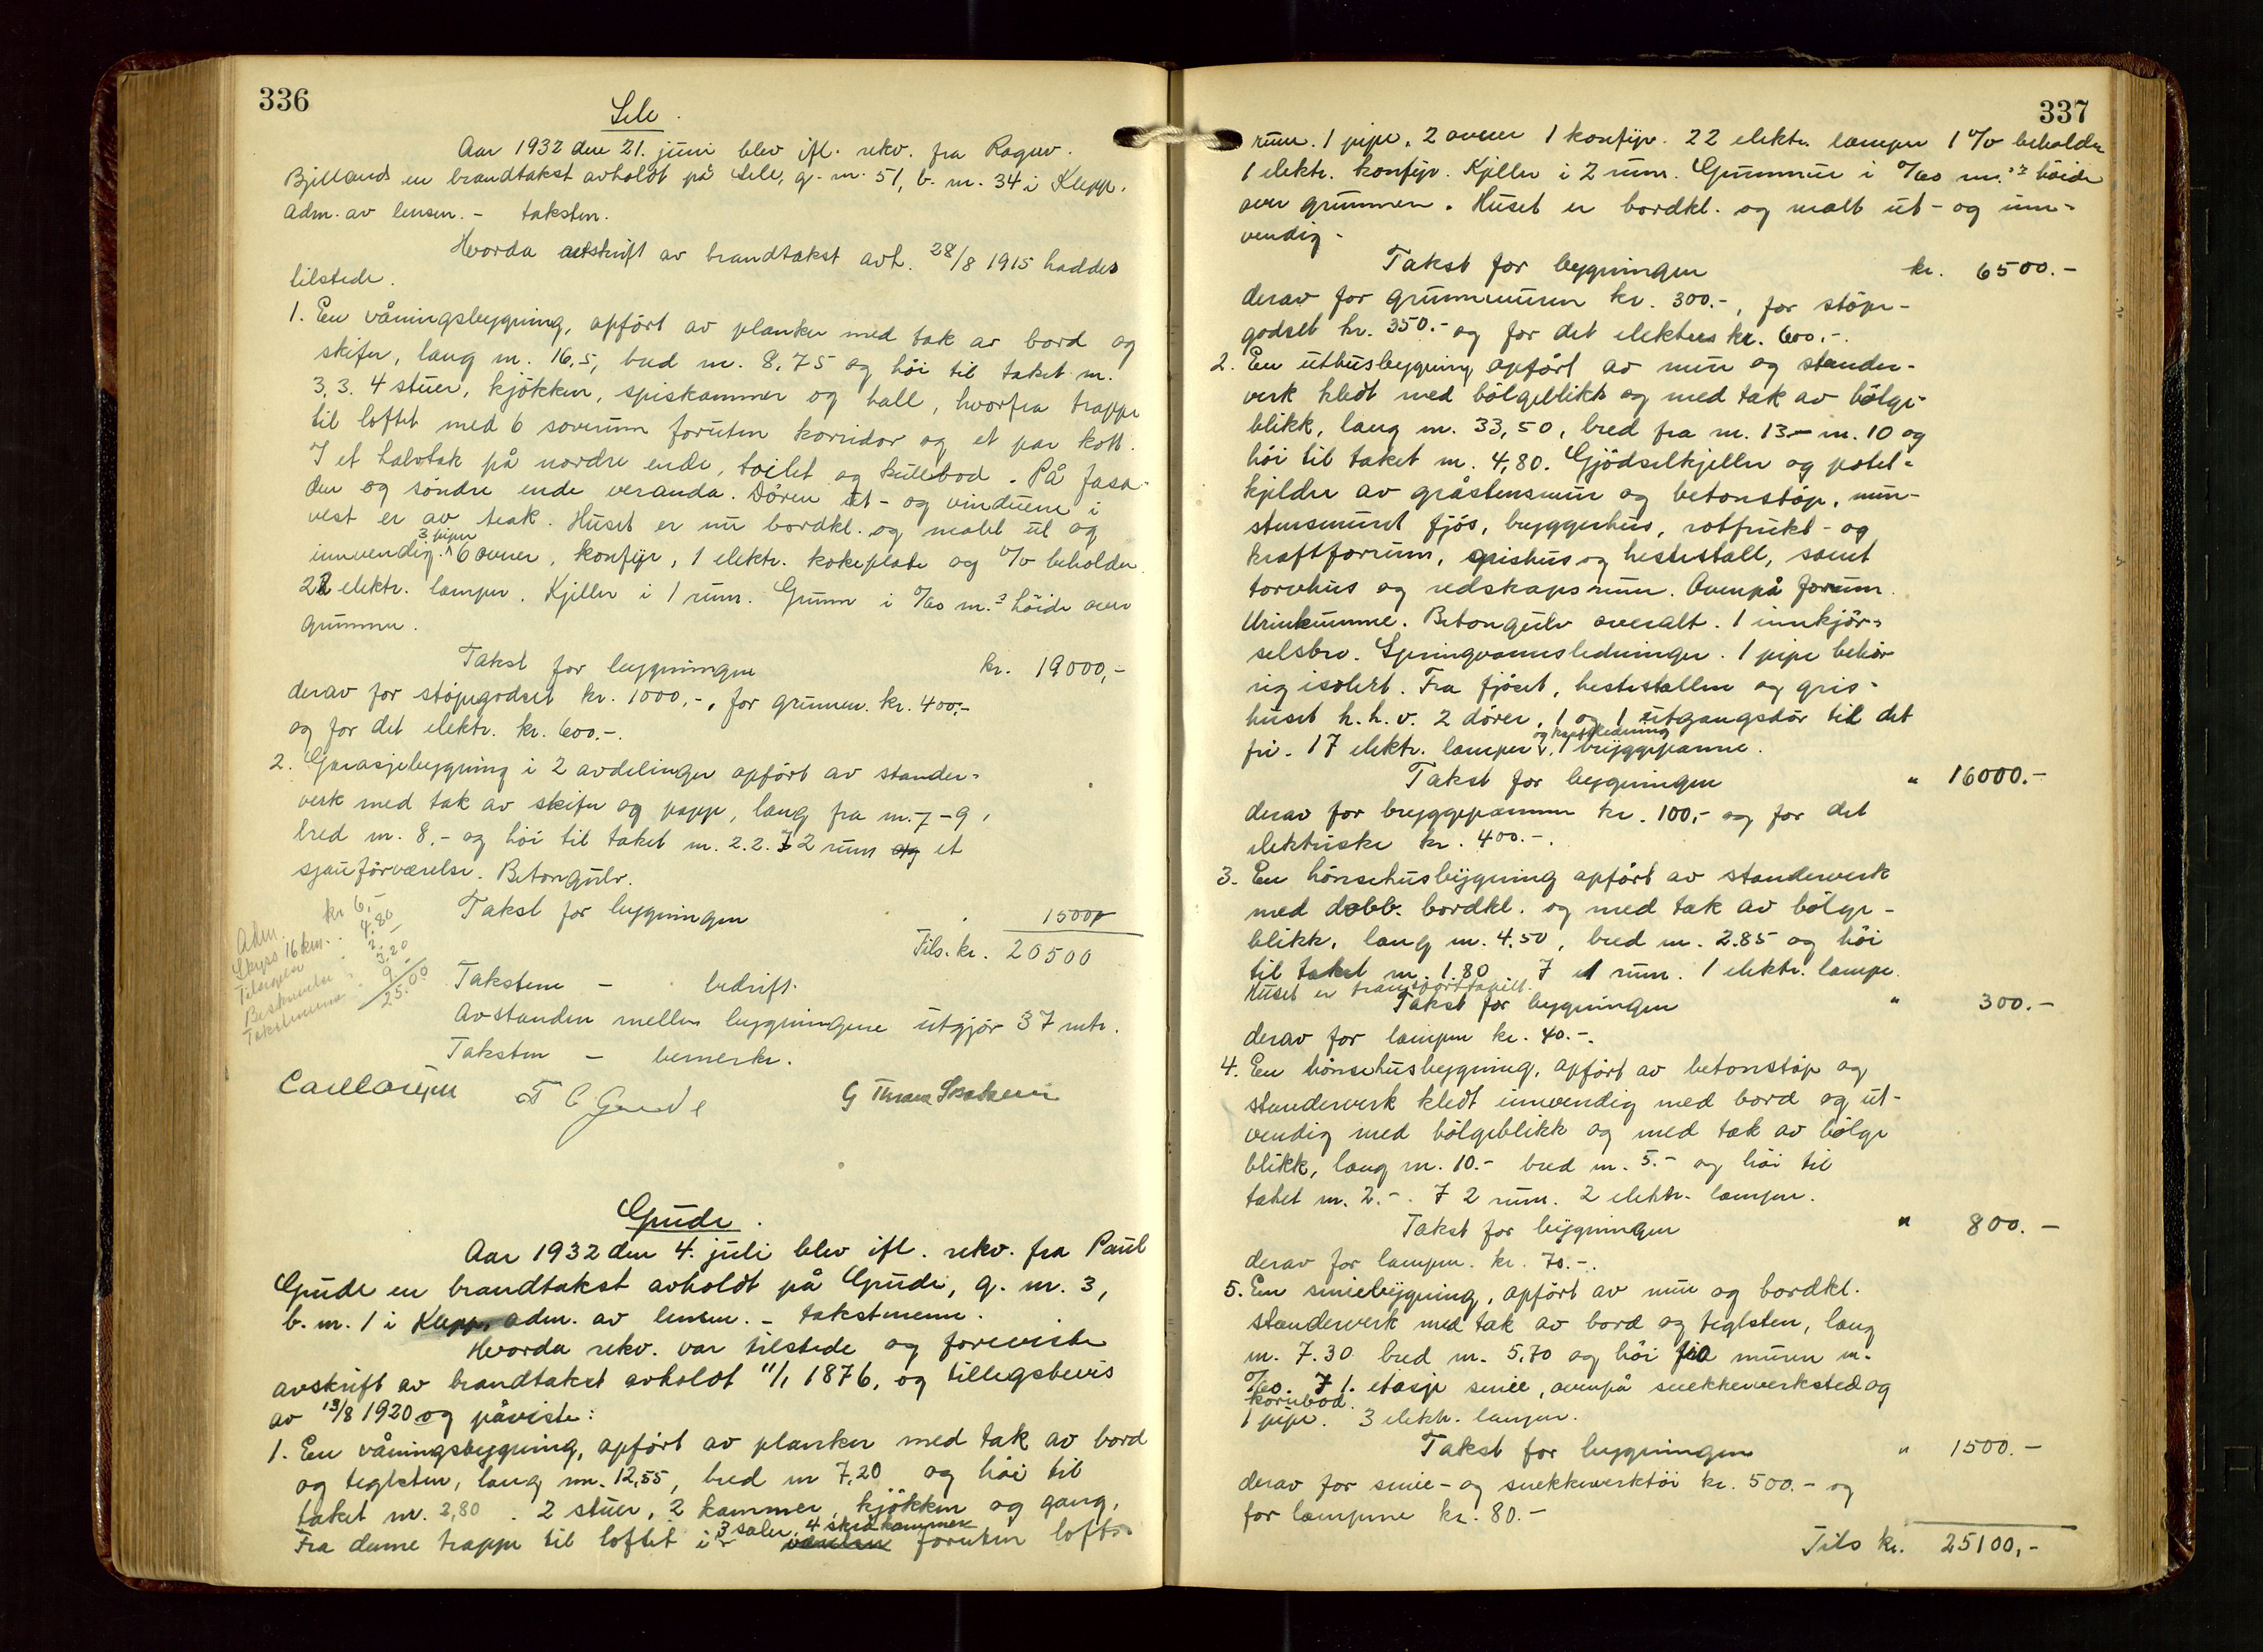 336
Sele.
Aar 1932 den 21. juni blev ifl. rekv. fra Ragnv.
Bjelland en brandtakst avholdt på Sele, g. nr. 51, b. nr. 34 i Klepp.
adm. av lensm. - takstm.
Hvorda avskrift av brandtakst avh. 28/8 1915 haddes
tilstede.
1. En våningsbygning, opført av planker med tak av bord og
skifer, lang m. 16,5, bred m. 8,75 og høi til taket m.
3,3. 4 stuer, kjøkken, spiskammer og hall, hvorfra trappe
til loftet med 6 soverum foruten korridor og et par kott.
I et halvtak på nordre ende, toilet og kullebod. På fasa-
den og søndre ende veranda. Dören ut- og vinduene i
vest er av teak. Huset er nu bordkl. og malt ut og
innvendig. 3 piper 6 ovner, komfyr, 1 elektr. kokeplate og v/v beholder
22 elektr. lamper. Kjeller i 1 rum. Grunn i 0/60 m.s høide over
grunnen.
Takst for bygningen kr. 19000,-
derav for støpegodset kr. 1000,-, for grunnen kr. 400,-
og for det elektr. kr. 600.-.
2. Garasjebygning i 2 avdelinger opført av stander-
verk med tak av skifer og papp, lang fra m. 7-9,
bred m. 8,- og høi til taket m. 2.2. I 2 rum og et
sjauførværelse. Betongulv.
Takst for bygningen 1500,-
Tils. kr. 20500
Adm. kr 6,-
Skyss 16 km. " 4.80
Tilsigelse " 2.-
Beskrivelse " 3.20
Takstmennene " 9.-
25.00
Takstene - bedrift.
Avstanden mellem bygningene utgjør 37 mtr.
Taksten - bemerkn.
T C Gude
Gude.
Aar 1932 den 4. juli blev ifl. rekv. fra Paul
Gude en brandtakst avholdt på Gude, g. nr. 3,
b. nr. 1 i Klepp, adm. av lensm. - takstmenn.
Hvorda rekv. var tilstede og foreviste
avskrift av brandtakst avholdt 11/1 1876, og tillegsbevis
av 13/8 1920 og påviste:
1. En våningsbygning, opført av planker med tak av bord
og teglsten, lang m. 12,55, bred m 7,20 og høi til
taket m. 2,80. 2 stuer, 2 kammer, kjøkken og gang.
Fra denne trappe til loftet i 3 saler, 4 skråkammer foruten lofts-
337
rum. 1 pipe. 2 ovner 1 komfyr. 22 elektr. lamper 1 v/v beholder
1 elektr. komfyr. Kjeller i 2 rum. Grunnmur i 0/60 m.s høide
over grunnen. Huset er bordkl. og malt ut- og inn-
vendig.
Takst for bygningen kr. 6500.-
derav for grunnmuren kr. 300.-, for støpe-
godset kr. 350.- og for det elektris kr. 600.-.
2. En uthusbygning opført av mur og stander-
verk kledt med bølgeblikk og med tak av bølge-
blikk, lang m. 33,50, bred fra m. 13.- m. 10 og
høi til taket m. 4,80. Gjødselkjeller og potet-
kjelder av gråstensmur og betonstøp, mur-
stensmuret fjøs, bryggerhus, rotfrukt- og
kraftforrum, grishus og hestestall, samt
torvhus og redskapsrum. Ovenpå forrum.
Urinkumme. Betongulv overalt. 1 innkjør-
selsbro. Springvannsledninger. 1 pipe behør-
rig isolert. Fra fjøset, hestestallen og gris-
huset h.h.v. 2 dører, 1 og 1 utgangsdør til det
fri. 17 elektr. lamper og kraftledning. 1 bryggepanne.
Takst for bygningen " 16000.-
derav for bryggepannen kr. 100,- og for det
elektriske kr. 400.-.
3. En hønsehusbygning opført av standerverk
med dobb. bordkl. og med tak av bølge-
blikk, lang m. 4.50, bred m. 2.85 og høi
til taket m. 1.80. I et rum. 1 elektr. lampe.
Huset er transportabelt.
Takst for bygningen " 300.-
derav for lampen kr. 40.-.
4. En hønsehusbygning, opført av betonstøp og
standerverk kledt innvendig med bord og ut-
vendig med bølgeblikk og med tak av bølge
blikk, lang m. 10.- bred m. 5.- og høi til
taket m. 2.-. I 2 rum. 2 elektr. lamper.
Takst for bygningen " 800.-
derav for lampen. kr. 70.-.
5. En smiebygning, opført av mur og bordkl.
standerverk med tak av bord og teglsten, lang
m. 7.30 bred m. 5,70 og høi fra muren m.
0/60. I 1. etasje smie, ovenpå snekkerverksted og
kornbod.
1 pipe. 3 elektr. lamper.
Takst for bygningen " 1500.-
derav for smie- og snekkerverktøi kr. 500.- og
for lampene kr. 80.-
Tils kr. 25100,-